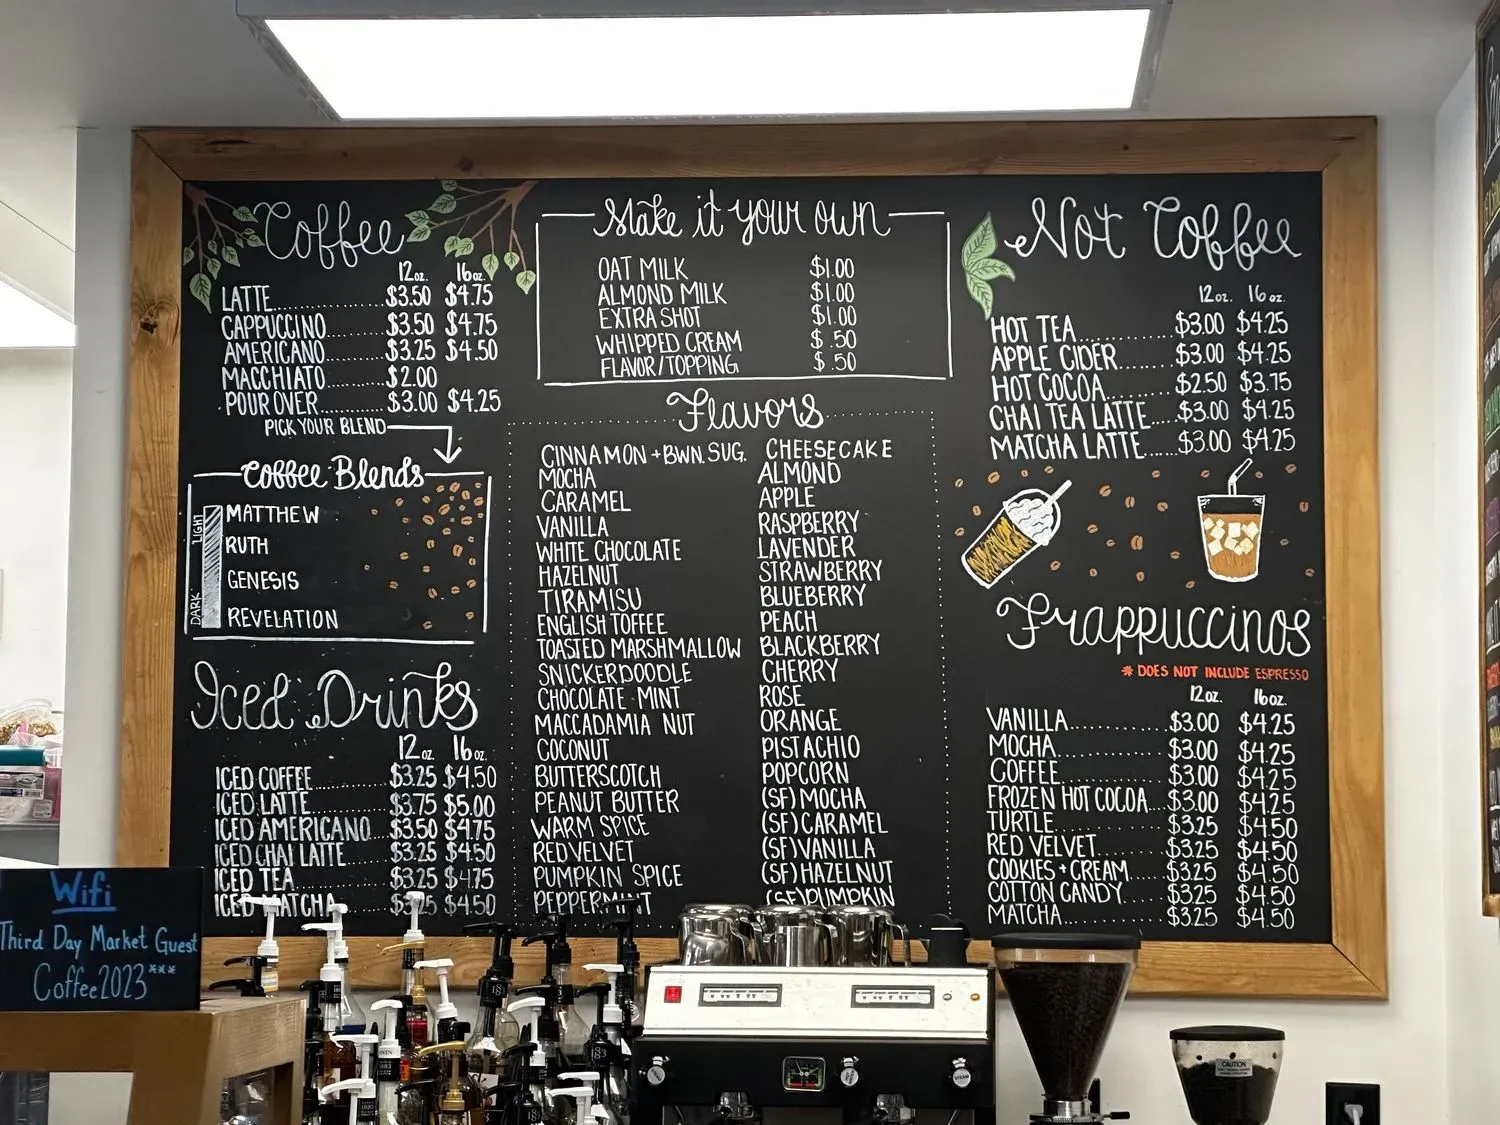 Coffee
12oz. 16oz.
LATTE.............$3.50 $4.75
CAPPUCCINO........$3.50 $4.75
AMERICANO.........$3.25 $4.50
MACCHIATO.........$2.00
POUR OVER.........$3.00 $4.25
PICK YOUR BLEND
Coffee Blends
LIGHT
DARK
MATTHEW
RUTH
GENESIS
REVELATION
Iced Drinks
12oz. 16oz.
ICED COFFEE.......$3.25 $4.50
ICED LATTE........$3.75 $5.00
ICED AMERICANO....$3.50 $4.75
ICED CHAI LATTE...$3.25 $4.50
ICED TEA..........$3.25 $4.75
ICED MATCHA.......$3.25 $4.50
Make it your own
OAT MILK $1.00
ALMOND MILK $1.00
EXTRA SHOT $1.00
WHIPPED CREAM $.50
FLAVOR/TOPPING $.50
Flavors
CINNAMON + BWN. SUG.
MOCHA
CARAMEL
VANILLA
WHITE CHOCOLATE
HAZELNUT
TIRAMISU
ENGLISH TOFFEE
TOASTED MARSHMALLOW
SNICKERDOODLE
CHOCOLATE MINT
MACCADAMIA NUT
COCONUT
BUTTERSCOTCH
PEANUT BUTTER
WARM SPICE
RED VELVET
PUMPKIN SPICE
PEPPERMINT
CHEESECAKE
ALMOND
APPLE
RASPBERRY
LAVENDER
STRAWBERRY
BLUEBERRY
PEACH
BLACKBERRY
CHERRY
ROSE
ORANGE
PISTACHIO
POPCORN
(SF) MOCHA
(SF) CARAMEL
(SF) VANILLA
(SF) HAZELNUT
(SF) PUMPKIN
Not Coffee
12oz. 16oz.
HOT TEA...........$3.00 $4.25
APPLE CIDER.......$3.00 $4.25
HOT COCOA.........$2.50 $3.75
CHAI TEA LATTE....$3.00 $4.25
MATCHA LATTE......$3.00 $4.25
Frappuccinos
* DOES NOT INCLUDE ESPRESSO
12oz. 16oz.
VANILLA...........$3.00 $4.25
MOCHA.............$3.00 $4.25
COFFEE............$3.00 $4.25
FROZEN HOT COCOA..$3.00 $4.25
TURTLE............$3.25 $4.50
RED VELVET........$3.25 $4.50
COOKIES + CREAM...$3.25 $4.50
COTTON CANDY......$3.25 $4.50
MATCHA............$3.25 $4.50
Wifi
Third Day Market Guest
Coffee2023***
CAUTION